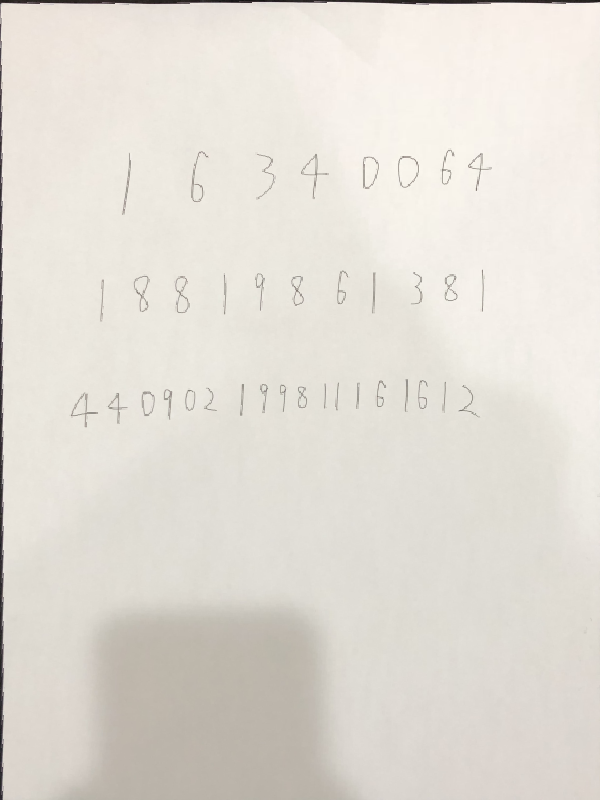 16340064
18819861381
440902199811161612